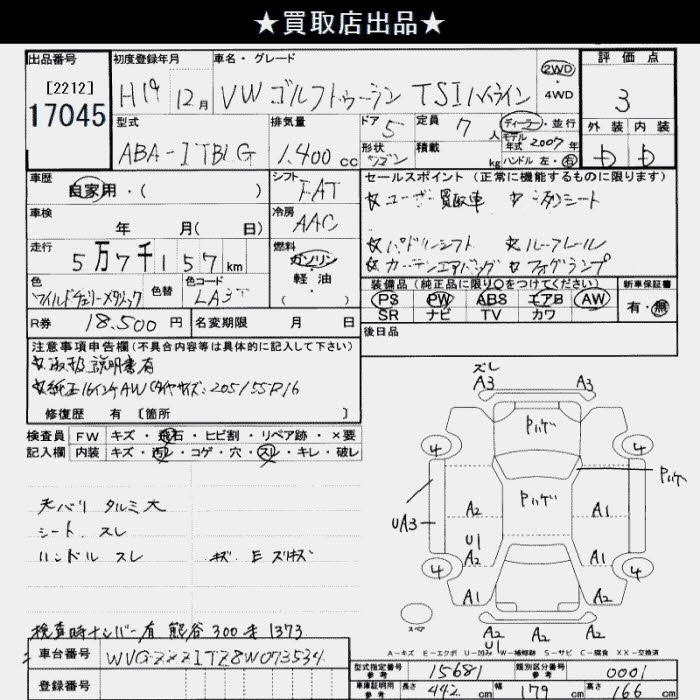 ★買取店出品★
出品番号
[2212]
17045
初度登録年月
H19 12月
車名・グレード
VW ゴルフトゥーラン TSI ハイライン
2WD
・
4WD
評価点
3
外装 内装
D D
型式
ABA-1TBLG
排気量
1,400 cc
ドア 5
形状 ワゴン
定員 7 人
積載 kg
ディーラー・並行
モデル年式 2007年
ハンドル 左・右
車歴 自家用・( )
シフト FAT
車検 年 月( 日)
冷房 AAC
走行 5万7千157km
燃料 ガソリン
軽油
( )
色 ワイルドチェリーメタリック
色替
色カラード
LA3T
R券 18,500円
名変期限 月 日
セールスポイント (正常に機能するものに限ります)
☆ユーザー買取車 ☆
☆パドルシフト ☆ルーフレール
☆カーテンエアバッグ ☆フォグランプ
装備品(純正品に限り○をつけてください)
PS PW ABS エアB AW
SR ナビ TV カワ
新車保証書
有・無
後日品
注意事項申告欄(不具合内容等は具体的に記入して下さい)
☆取扱説明書有
☆純正16インチAW(タイヤサイズ:205/55R16
修復歴 有 [箇所 ]
検査員 FW キズ・飛石・ヒビ割・リペア跡・×要
記入欄 内装 キズ・汚レ・コゲ・穴・スレ・キレ・破レ
天バリ タルミ大
シート スレ
ハンドル スレ キズ E スリキズ
検査時ナンバー有 熊谷 300 1373
車台番号 WVGZZZ1TZ8W073534
登録番号
ズレ
A3 A3
Pハゲ
4 4
Pハゲ
Pハゲ
UA3
A2 A1
U1
A2 A1
4 4
A1 A2
スペア
A2 A2 A2
U1
A-キズ E-エクボ U-凹み W-補修跡 S-サビ C-腐食 XX-交換済
型式指定番号 15681
類別区分番号 0001
車庫証明用参考 長さ 442 cm 幅 179 cm 高さ 166 cm